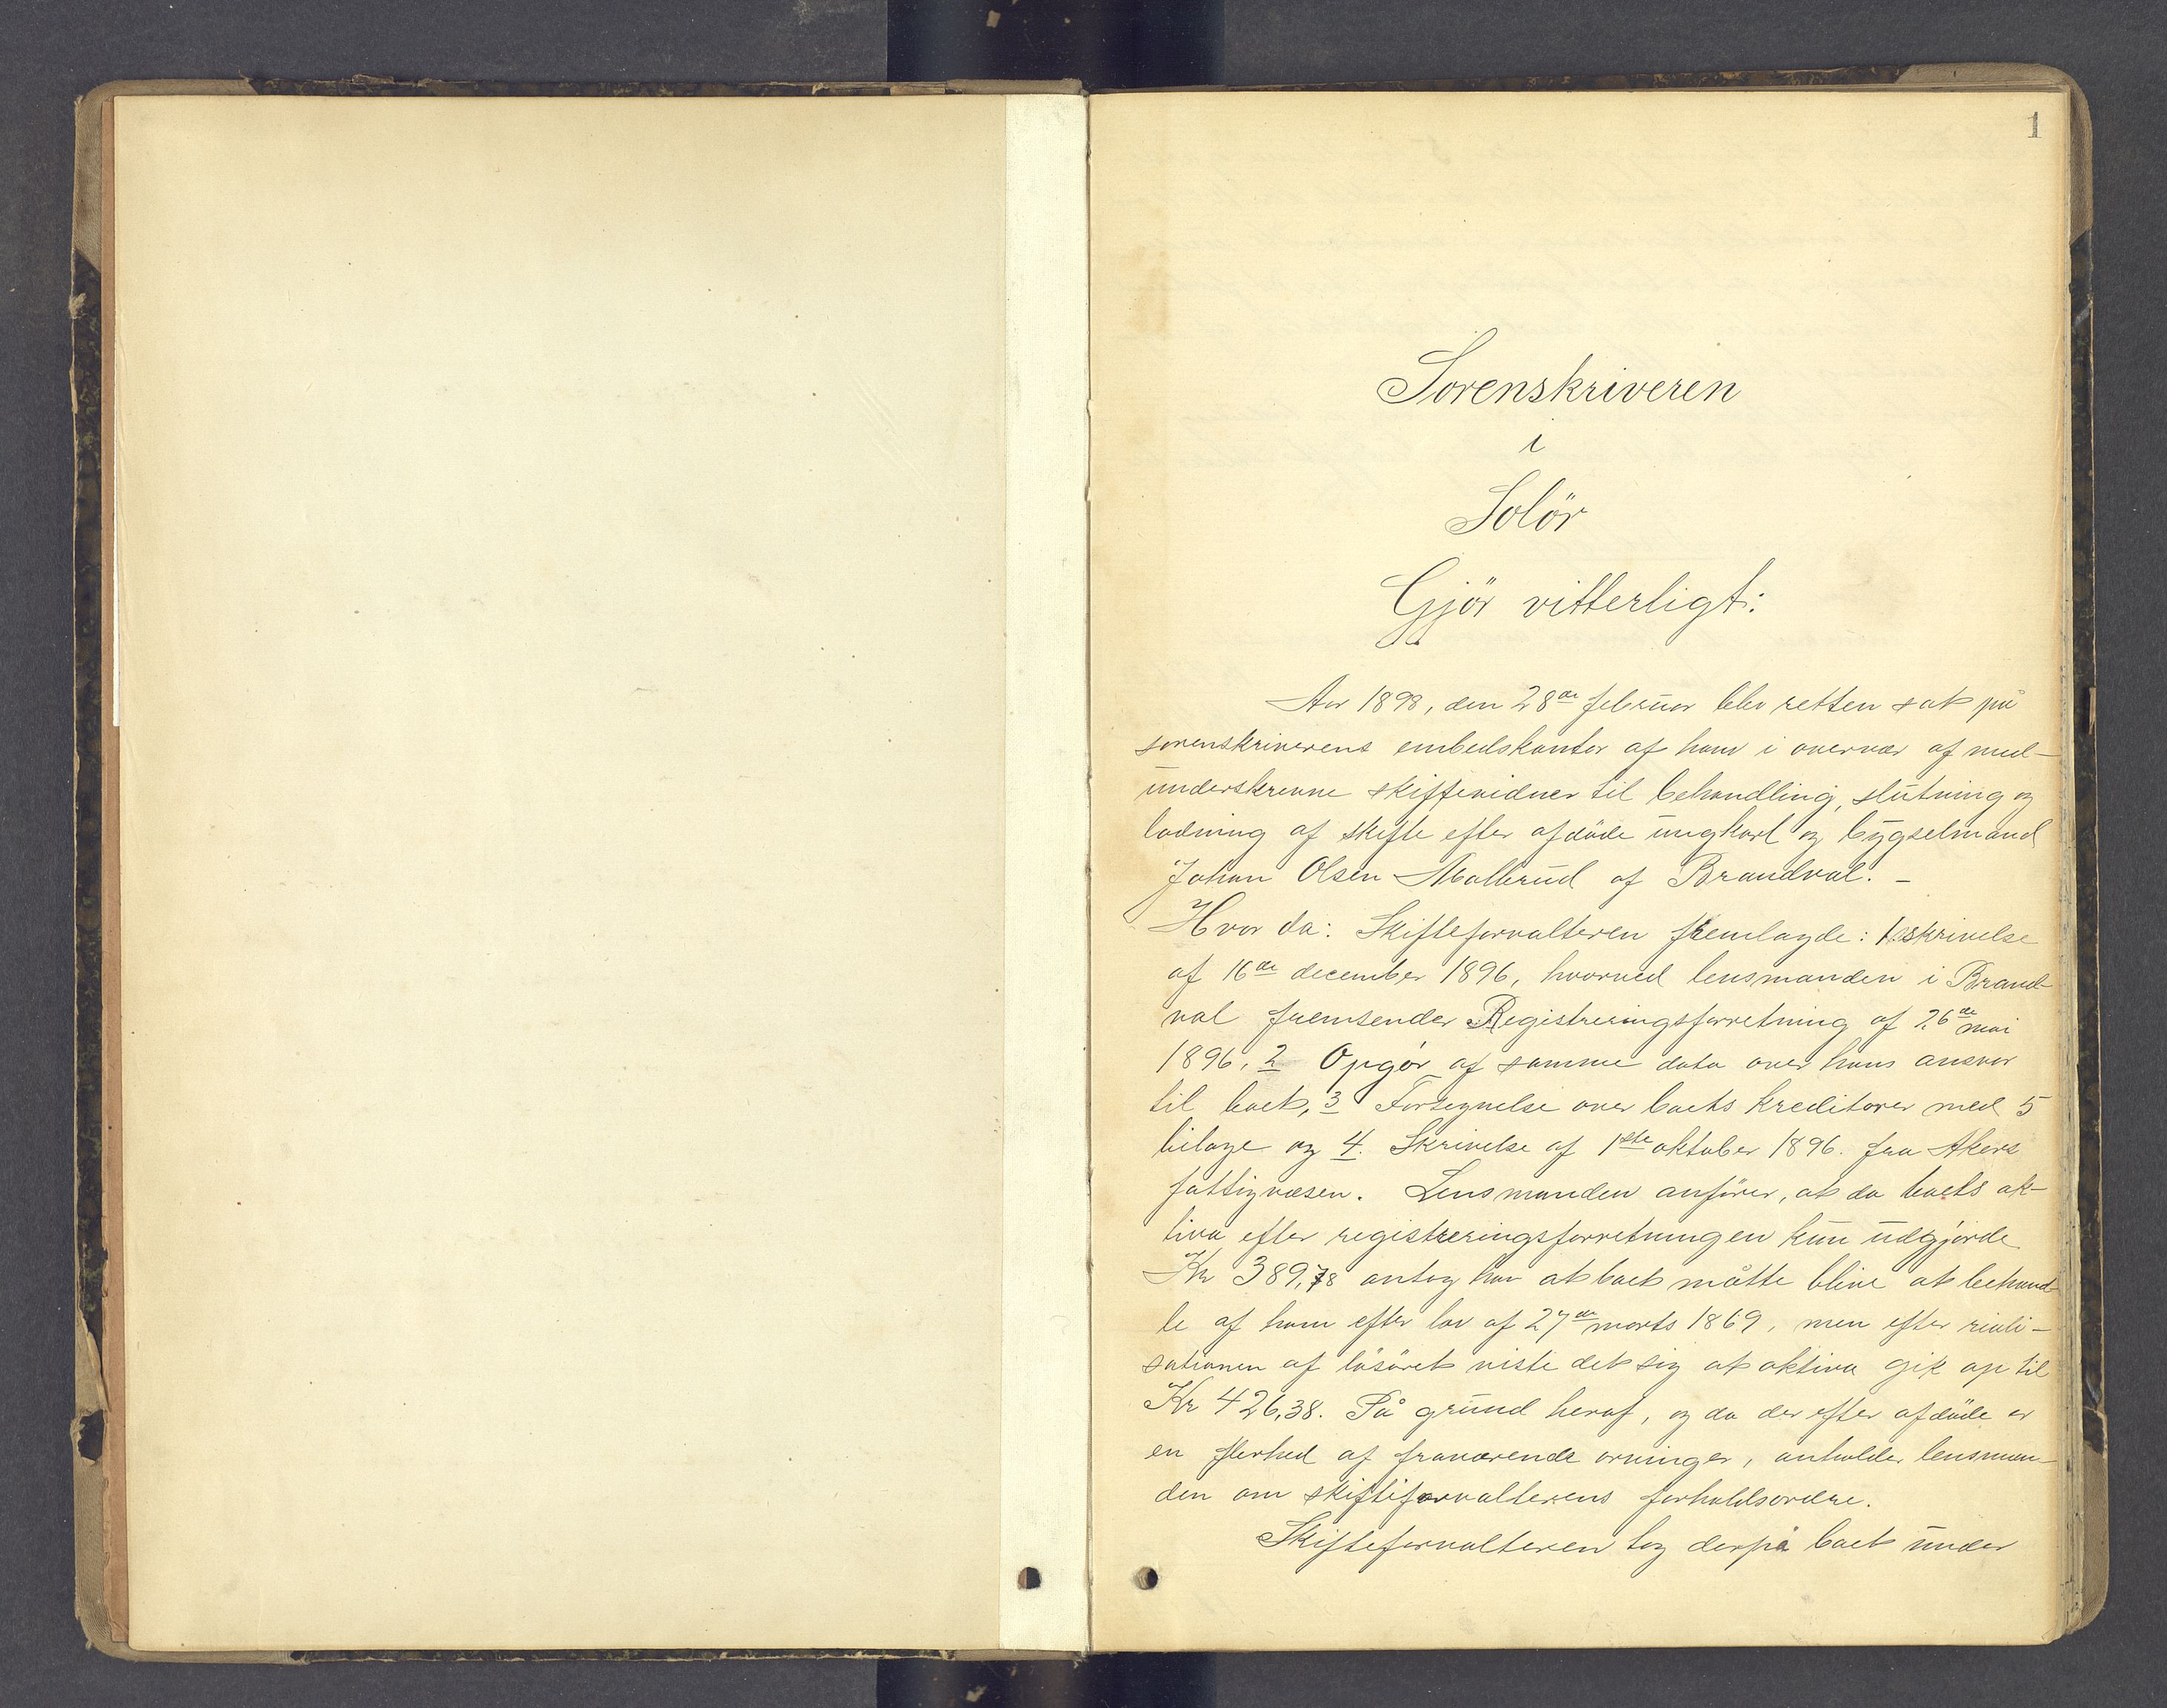 1
Sorenskriveren
i
Solör
Gjör vitterligt:
Aar 1898, den 28de februar blev retten sat på
sorenskriverens embedskontor af ham i overvær af med-
underskrevne skiftevidner til behandling, slutning og
lodning af skifte efter afdöde ungkarl og bygselmand
Johan Olsen af Brandval. -
Hvor da: Skifteforvalteren fremlagde: 1 skrivelse
af 16de december 1896, hvorved lensmanden i Brand-
val fremsender Registreringsforretning af 26de mai
1896, 2 Opgör af samme dato over hans ansvar
til boet, 3 Fortegnelse over boets kreditorer med 5
bilage og 4. Skrivelse af 1ste oktober 1896. fra Akers
fattigvæsen. Lensmanden anförer, at da boets ak-
tiva efter registreringsforretningen kun udgjorde
Kr 389,78 antog han at boet måtte blive at behand-
le af ham efter lov af 27de marts 1869, men efter reali-
sationen af lösöret viste det sig at aktiva gik op til
Kr 426,38. På grund heraf, og da der efter afdöde er
en flerhed af fraværende arvinger, anholder lensman-
den om skifteforvalterens forholdsordre.
Skifteforvalteren tog derpå boet under